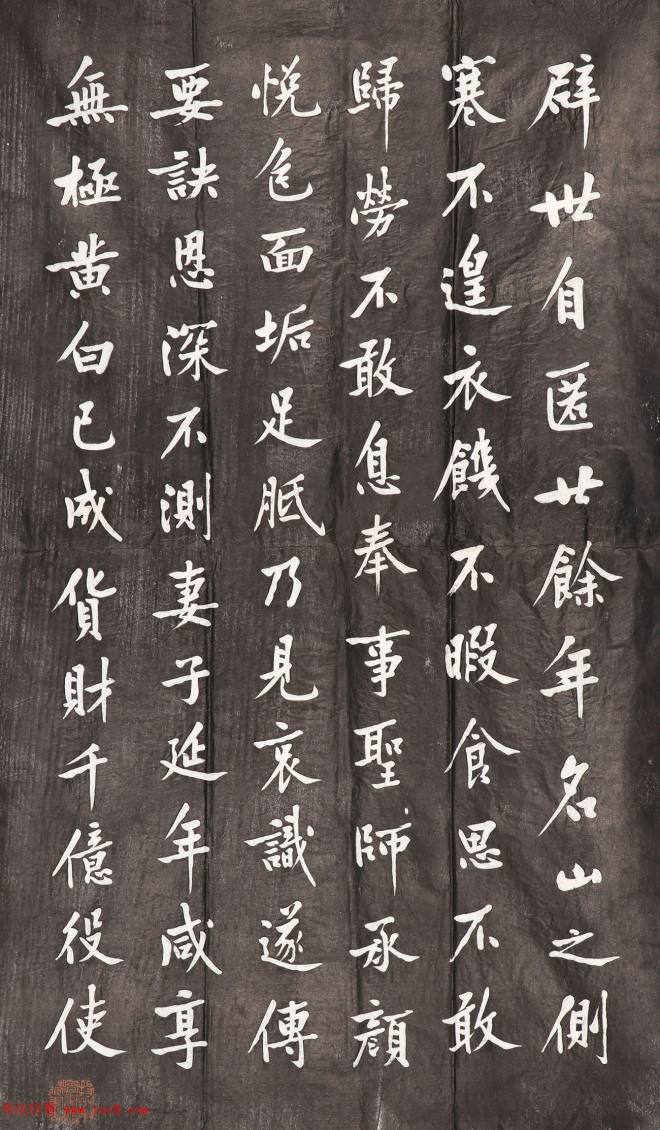 辟世自匿廿餘年名山之側
寒不遑衣饑不暇食思不敢
歸勞不敢息奉事聖師承顔
悅色面垢足胝乃見哀識遂傳
要訣恩深不測妻子延年咸享
無極黄白已成貨財千億役使